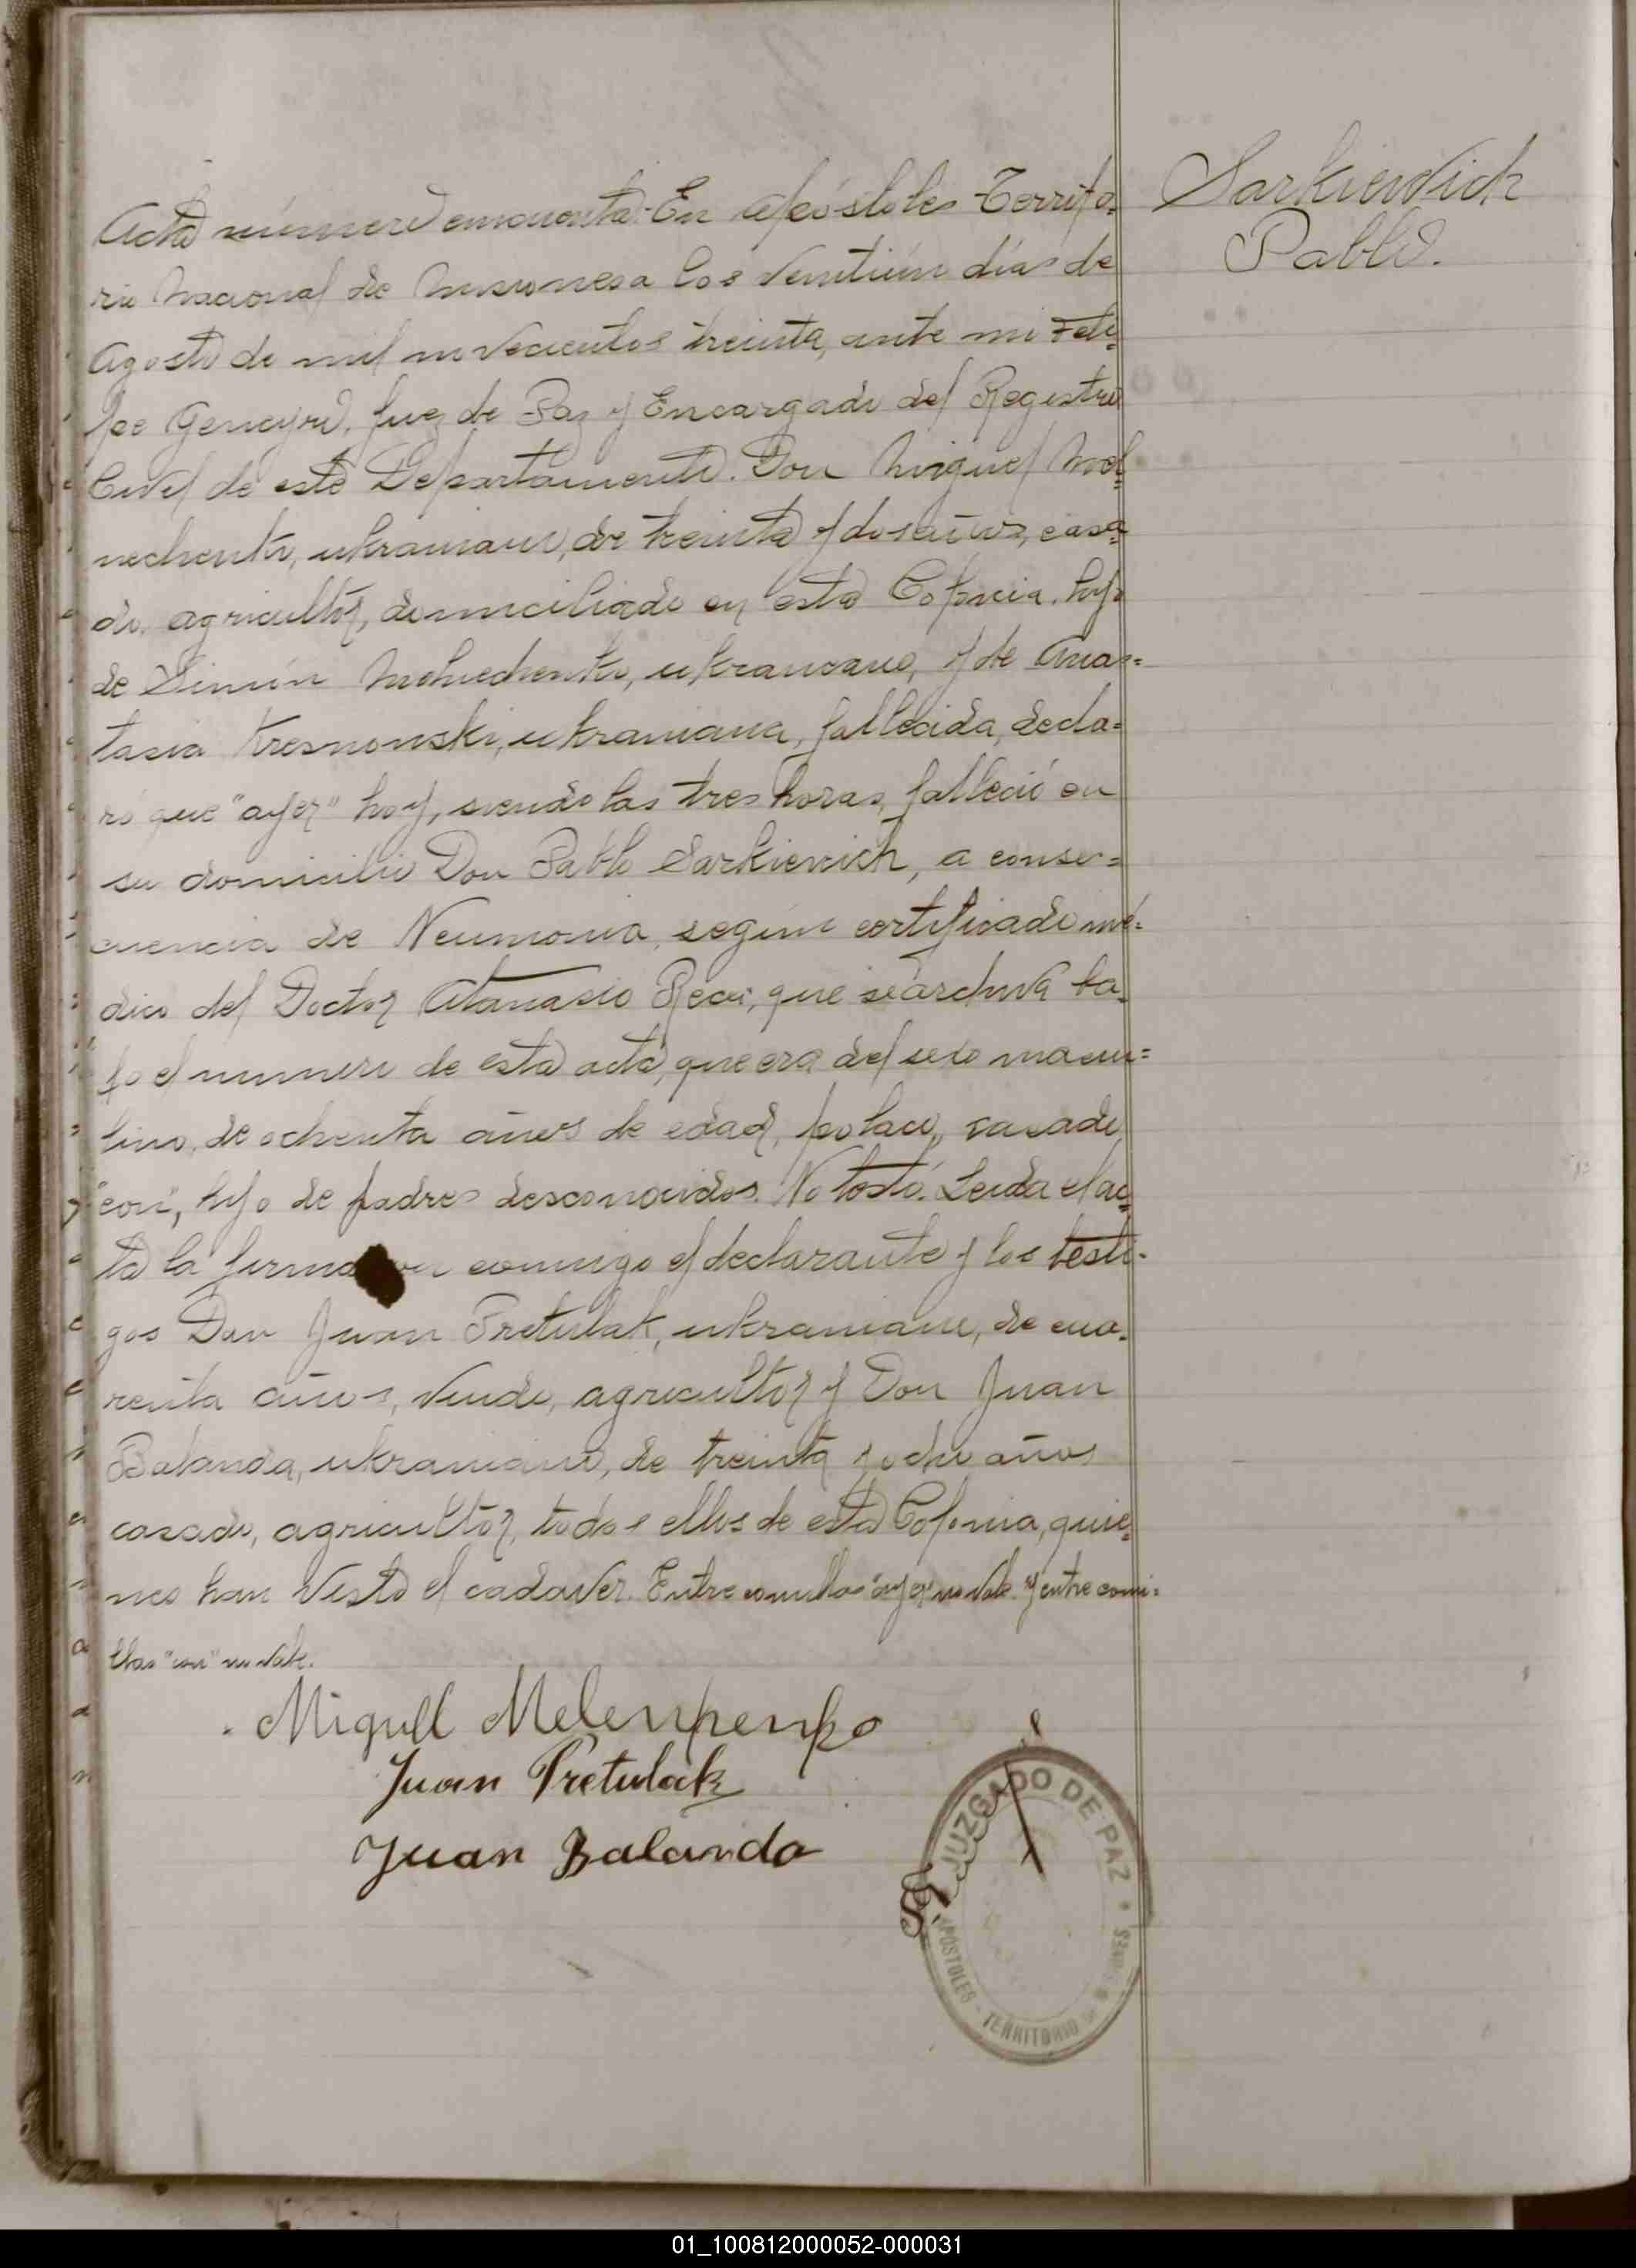 Sarkievich
Pablo.
Acta número cincuenta: En Apóstoles Territo=
rio Nacional de Misiones a los veintiún días de
Agosto de mil novecientos treinta, ante mi Feli=
pe Geneyro, Juez de Paz y Encargado del Registro
Civil de este Departamento. Don Miguel Mel=
nechenko, ukraniano, de treinta y dos años, casa=
do, agricultor, domiciliado en esta Colonia, hijo
de Simón Melnechenko, ukraniano, y de Anas=
tasia Kresnonski, ukraniana, fallecida, decla=
ró que "ayer" hoy, siendo las tres horas, falleció en
su domicilio Don Pablo Sarkievich, a conse=
cuencia de Neumonia, según certificado mé=
dico del Doctor Atanasio que se archiva ba=
jo el numero de esta acta, que era del sexo mascu=
lino, de ochenta años de edad, polaco, casado
"con", hijo de padres desconocidos. No testó. Leida el ac=
ta la firmaron conmigo el declarante y los testi=
gos Don Juan Pretulak, ukraniano, de cua=
renta años, viudo, agricultor y Don Juan
Balanda, ukraniano, de treinta y ocho años
casado, agricultor, todos ellos de esta Colonia, quie=
nes han visto el cadaver. Entre comillas "ayer" no vale. y entre comi=
llas "con" no vale.
Miguel
Juan Pretulak
Juan Balanda
JUZGADO DE PAZ
APÓSTOLES - TERRITORIO DE MISIONES
01_100812000052-000031